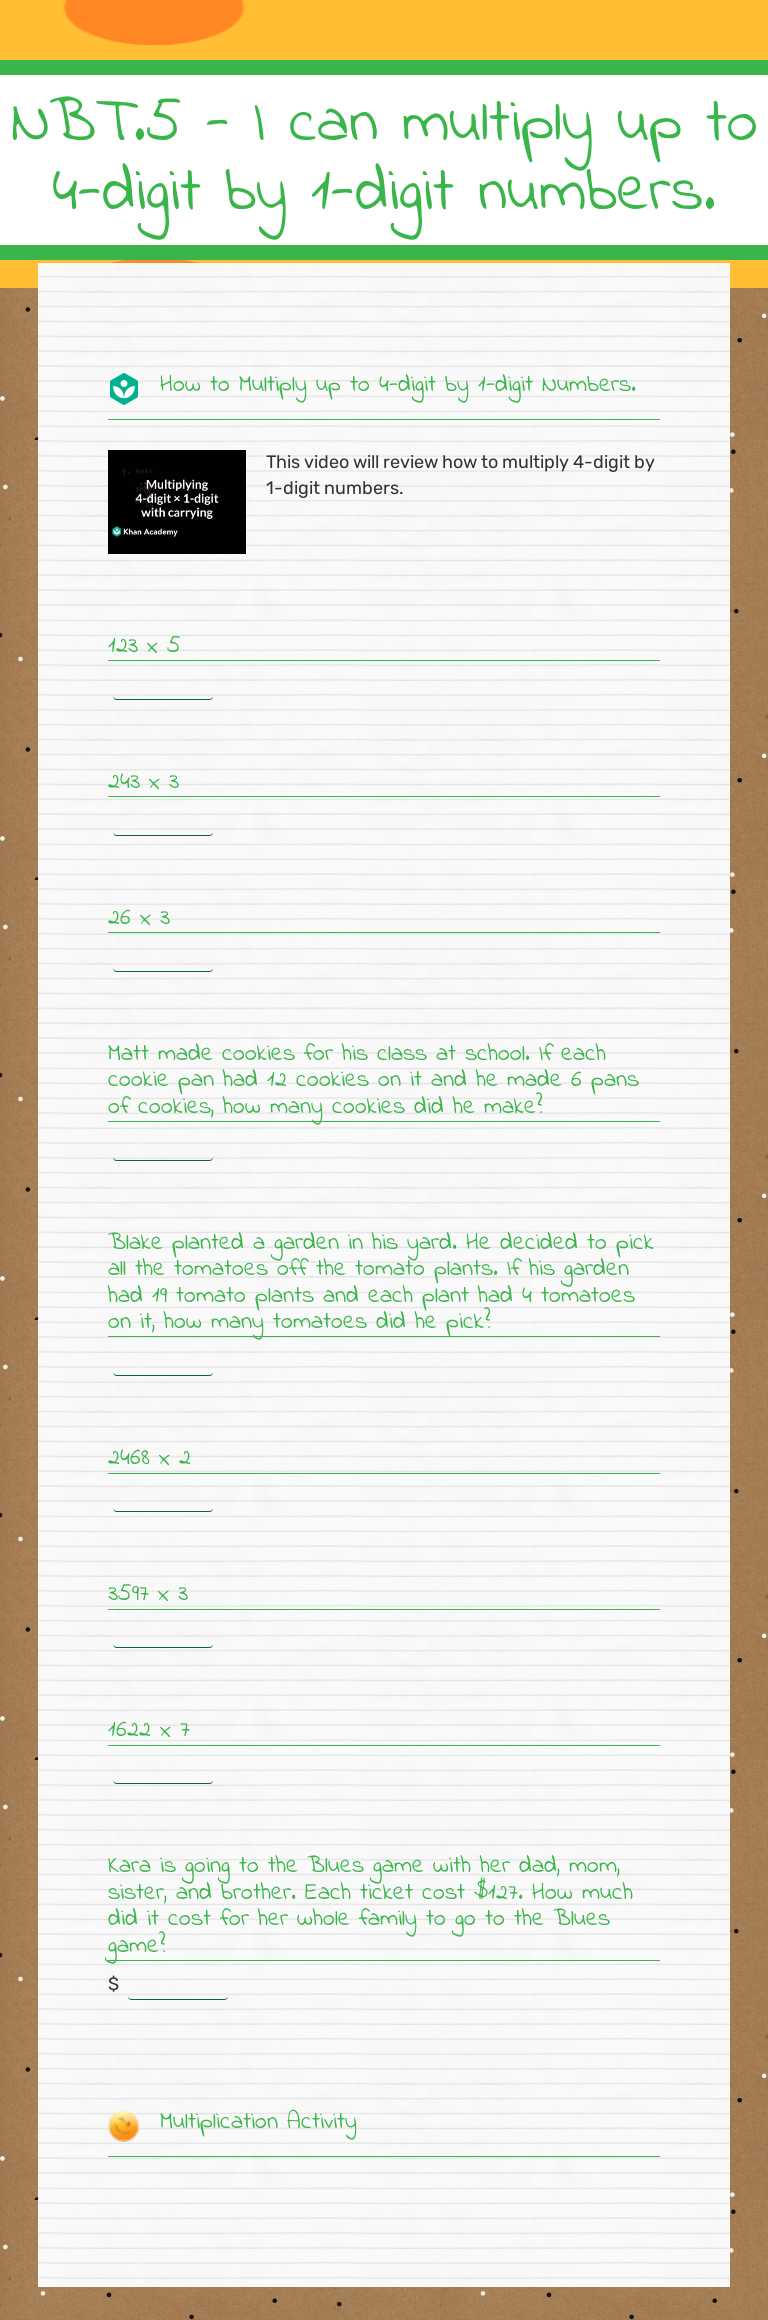 NBT.5 - I can multiply up to
4-digit by 1-digit numbers.
How to Multiply up to 4-digit by 1-digit Numbers.
Multiplying
4-digit × 1-digit
with carrying
Khan Academy
This video will review how to multiply 4-digit by
1-digit numbers.
123 x 5
243 x 3
26 x 3
Matt made cookies for his class at school. If each
cookie pan had 12 cookies on it and he made 6 pans
of cookies, how many cookies did he make?
Blake planted a garden in his yard. He decided to pick
all the tomatoes off the tomato plants. If his garden
had 19 tomato plants and each plant had 4 tomatoes
on it, how many tomatoes did he pick?
2468 x 2
3597 x 3
1622 x 7
Kara is going to the Blues game with her dad, mom,
sister, and brother. Each ticket cost $127. How much
did it cost for her whole family to go to the Blues
game?
$
Multiplication Activity